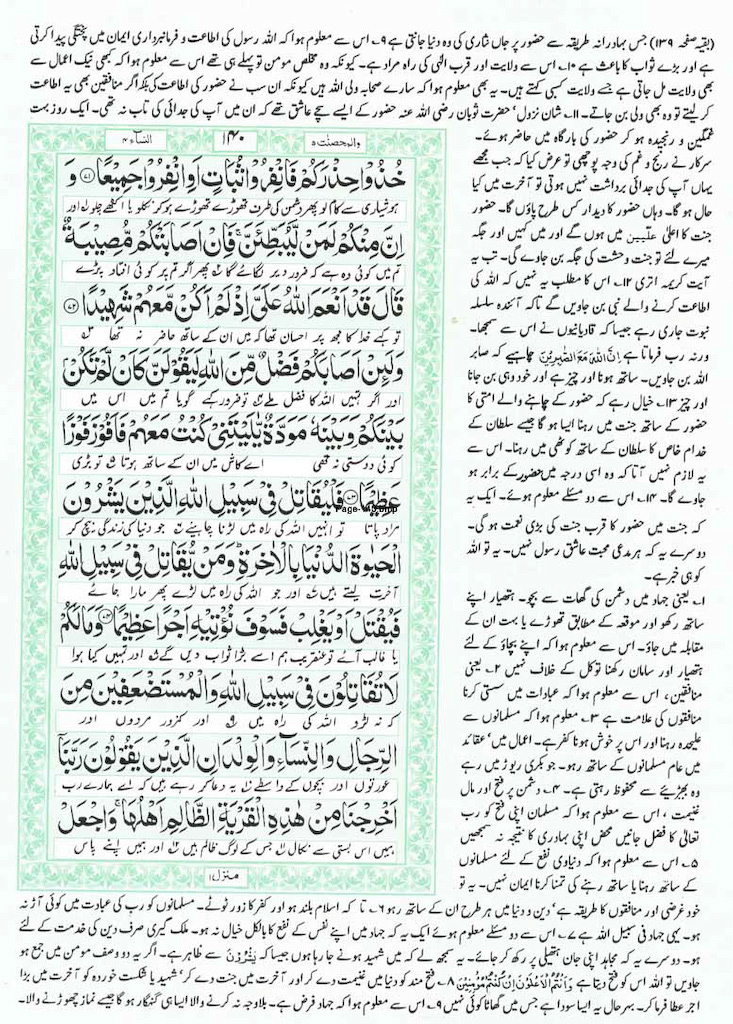 (بقیہ صفحہ ۱۳۹) جس بہادرانہ طریقہ سے حضور پر جاں نثاری کی وہ دنیا جانتی ہے ۹۔ اس سے معلوم ہوا کہ اللہ رسول کی اطاعت و فرمانبرداری ایمان میں پختگی پیدا کرتی
ہے اور بڑے ثواب کا باعث ہے ۱۰۔ اس سے ولایت اور قرب الٰہی کی راہ مراد ہے۔ کیونکہ وہ مخلص مومن تو پہلے ہی تھے اس سے معلوم ہوا کہ کبھی نیک اعمال سے
بھی ولایت مل جاتی ہے جسے ولایت کسبی کہتے ہیں۔ یہ بھی معلوم ہوا کہ سارے صحابہ ولی اللہ ہیں کیونکہ ان سب نے حضور کی اطاعت کی بلکہ اگر منافقین بھی یہ اطاعت
کر لیتے تو وہ بھی ولی بن جاتے۔ ۱۱۔ شان نزول' حضرت ثوبان رضی اللہ عنہ حضور کے ایسے سچے عاشق تھے کہ ان میں آپ کی جدائی کی تاب نہ تھی۔ ایک روز بہت
غمگین و رنجیدہ ہو کر حضور کی بارگاہ میں حاضر ہوئے۔
سرکار نے رنج و غم کی وجہ پوچھی تو عرض کیا کہ جب مجھے
یہاں آپ کی جدائی برداشت نہیں ہوتی تو آخرت میں کیا
حال ہو گا۔ وہاں حضور کا دیدار کس طرح پاؤں گا۔ حضور
جنت کا اعلیٰ علیین میں ہوں گے اور میں کہیں اور جگہ
میرے لئے تو جنت وحشت کی جگہ بن جاوے گی۔ تب یہ
آیت کریمہ اتری ۱۲۔ اس کا مطلب یہ نہیں کہ اللہ کی
اطاعت کرنے والے نبی بن جاویں گے تاکہ آئندہ سلسلہ
نبوت جاری رہے جیسا کہ قادیانیوں نے اس سے سمجھا۔
ورنہ رب فرماتا ہے اِنَّ اللّٰهَ مَعَ الصّٰبِرِیْنَ چاہیے کہ صابر
اللہ بن جاویں۔ ساتھ ہونا اور چیز ہے اور خود وہی بن جانا
اور چیز ۱۳۔ خیال رہے کہ حضور کے چاہنے والے امتی کا
حضور کے ساتھ جنت میں رہنا ایسا ہو گا جیسے سلطان کے
خدام خاص کا سلطان کے ساتھ کوٹھی میں رہنا۔ اس سے
یہ لازم نہیں آتا کہ وہ اسی درجہ میں حضور کے برابر ہو
جاوے گا۔ ۱۴۔ اس سے دو مسئلے معلوم ہوئے۔ ایک یہ
کہ جنت میں حضور کا قرب جنت کی بڑی نعمت ہو گی۔
دوسرے یہ کہ ہر مدعی محبت عاشق رسول نہیں۔ یہ تو اللہ
کو ہی خبر ہے۔
۱۔ یعنی جہاد میں دشمن کی گھات سے بچو۔ ہتھیار اپنے
ساتھ رکھو اور موقعہ کے مطابق تھوڑے یا بہت ان کے
مقابلہ میں جاؤ۔ اس سے معلوم ہوا کہ اپنے بچاؤ کے لئے
ہتھیار اور سامان رکھنا توکل کے خلاف نہیں ۲۔ یعنی
منافقین، اس سے معلوم ہوا کہ عبادات میں سستی کرنا
منافقوں کی علامت ہے ۳۔ معلوم ہوا کہ مسلمانوں سے
علیحدہ رہنا اور اس پر خوش ہونا کفر ہے۔ اعمال میں' عقائد
میں عام مسلمانوں کے ساتھ رہو۔ جو بکری ریوڑ میں رہے
وہ بھیڑیئے سے محفوظ رہتی ہے۔ ۴۔ دشمن پر فتح اور مال
غنیمت، اس سے معلوم ہوا کہ مسلمان اپنی فتح کو رب
تعالیٰ کا فضل جانیں محض اپنی بہادری کا نتیجہ نہ سمجھیں
۵۔ اس سے معلوم ہوا کہ دنیاوی نفع کے لئے مسلمانوں
کے ساتھ رہنا یا ساتھ رہنے کی تمنا کرنا ایمان نہیں۔ یہ تو
والمحصنٰت ۵ ۱۴۰ النسآء ۴
خُذُوْا حِذْرَكُمْ فَانْفِرُوْا ثُبَاتٍ اَوِ انْفِرُوْا جَمِيْعًا ۝۷۱ وَ
ہوشیاری سے کام لو پھر دشمن کی طرف تھوڑے تھوڑے ہو کر نکلو یا اکٹھے چلو اور
اِنَّ مِنْكُمْ لَمَنْ لَّيُبَطِّئَنَّ ۚ فَاِنْ اَصَابَتْكُمْ مُّصِيْبَةٌ
تم میں کوئی وہ ہے کہ ضرور دیر لگائے گا پھر اگر تم پر کوئی افتاد پڑے
قَالَ قَدْ اَنْعَمَ اللّٰهُ عَلَيَّ اِذْ لَمْ اَكُنْ مَّعَهُمْ شَهِيْدًا ۝۷۲
تو کہے خدا کا مجھ پر احسان تھا کہ میں ان کے ساتھ حاضر نہ تھا
وَلَئِنْ اَصَابَكُمْ فَضْلٌ مِّنَ اللّٰهِ لَيَقُوْلَنَّ كَاَنْ لَّمْ تَكُنْ
اور اگر تمہیں اللہ کا فضل ملے تو ضرور کہے گویا تم میں اس میں
بَيْنَكُمْ وَبَيْنَهٗ مَوَدَّةٌ يّٰلَيْتَنِيْ كُنْتُ مَعَهُمْ فَاَفُوْزَ فَوْزًا
کوئی دوستی نہ تھی اے کاش میں ان کے ساتھ ہوتا تو بڑی
عَظِيْمًا ۝۷۳ فَلْيُقَاتِلْ فِيْ سَبِيْلِ اللّٰهِ الَّذِيْنَ يَشْرُوْنَ
مراد پاتا تو انہیں اللہ کی راہ میں لڑنا چاہئے جو دنیا کی زندگی بیچ کر
الْحَيٰوةَ الدُّنْيَا بِالْاٰخِرَةِ ؕ وَمَنْ يُّقَاتِلْ فِيْ سَبِيْلِ اللّٰهِ
آخرت لیتے ہیں اور جو اللہ کی راہ میں لڑے پھر مارا جائے
فَيُقْتَلْ اَوْ يَغْلِبْ فَسَوْفَ نُؤْتِيْهِ اَجْرًا عَظِيْمًا ۝۷۴ وَمَا لَكُمْ
یا غالب آئے تو عنقریب ہم اسے بڑا ثواب دیں گے اور تمہیں کیا ہوا
لَا تُقَاتِلُوْنَ فِيْ سَبِيْلِ اللّٰهِ وَالْمُسْتَضْعَفِيْنَ مِنَ
کہ نہ لڑو اللہ کی راہ میں اور کمزور مردوں اور
الرِّجَالِ وَالنِّسَآءِ وَالْوِلْدَانِ الَّذِيْنَ يَقُوْلُوْنَ رَبَّنَآ
عورتوں اور بچوں کے واسطے یہ دعا کر رہے ہیں کہ اے ہمارے رب
اَخْرِجْنَا مِنْ هٰذِهِ الْقَرْيَةِ الظَّالِمِ اَهْلُهَا ۚ وَاجْعَلْ
ہمیں اس بستی سے نکال جس کے لوگ ظالم ہیں اور ہمیں اپنے پاس
منزل ۱
خود غرضی اور منافقوں کا طریقہ ہے' دین و دنیا میں ہر طرح ان کے ساتھ رہو ۶۔ تا کہ اسلام بلند ہو اور کفر کا زور ٹوٹے۔ مسلمانوں کو رب کی عبادت میں کوئی آڑ نہ
ہو۔ یہی جہاد فی سبیل اللہ ہے ۷۔ اس سے دو مسئلے معلوم ہوئے ایک یہ کہ جہاد میں اپنے نفس کے نفع کا بالکل خیال نہ ہو۔ ملک گیری صرف دین کی خدمت کے لئے
ہو۔ دوسرے یہ کہ مجاہد اپنی جان ہتھیلی پر رکھ کر جائے۔ یہ سمجھ لے کہ میں شہید ہونے جا رہا ہوں جیسا کہ یَشْرُوْنَ سے ظاہر ہے۔ اگر یہ دو وصف مومن میں جمع ہو
جاویں تو اللہ اس کو فتح دیتا ہے وَاَنْتُمُ الْاَعْلَوْنَ اِنْ كُنْتُمْ مُّؤْمِنِیْنَ ۸۔ فتح مند کو دنیا میں غنیمت دے کر اور آخرت میں جنت دے کر' شہید یا شکست خوردہ کو آخرت میں بڑا
اجر عطا فرما کر۔ بہرحال یہ ایسا سودا ہے جس میں گھاٹا کوئی نہیں ۹۔ اس سے معلوم ہوا کہ جہاد فرض ہے۔ بلاوجہ نہ کرنے والا ایسا ہی گنہگار ہو گا جیسے نماز چھوڑنے والا۔